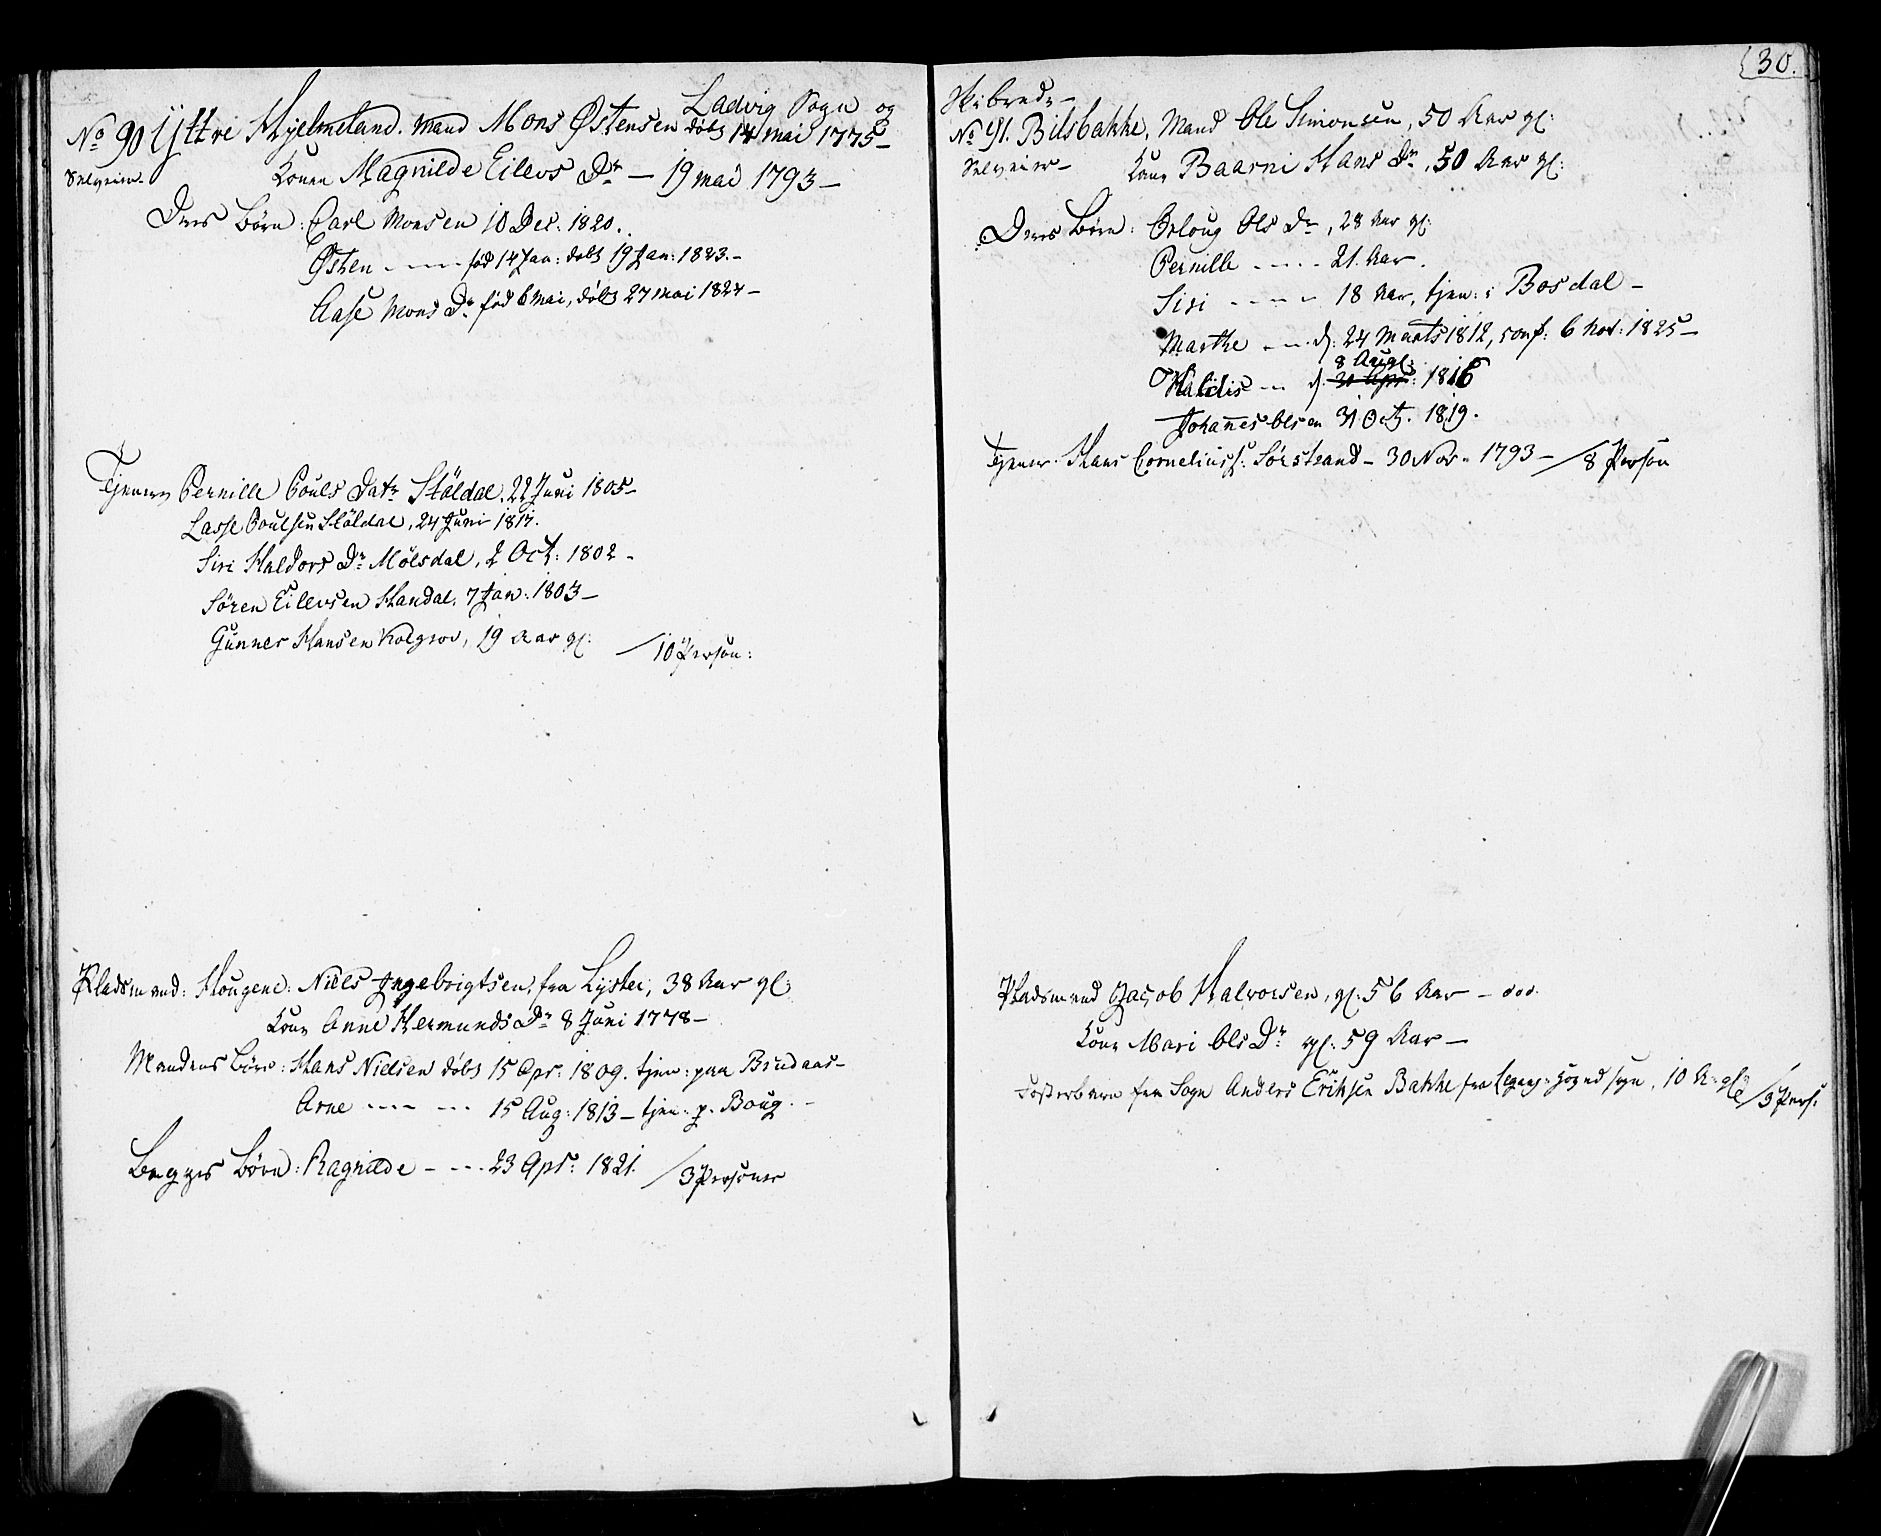 Ladvig Sogn og
No 90 Yttre Hjelmeland. Mand Mons Østensen døbt 14 Mai 1775 –
Selveier – Konen Magnilde Eilevs Dr – 19 mai 1793 –
Deres Børn: Carl Monsen 10 Dec: 1820.
Østen - - - - fød 14 Jan: døbt 19 Jan: 1823. –
Aase Mons Dr fød 6 mai, døbt 27 mai 1827 –
Tjenere Pernille Pouls Datr Støldal. 22 Juni 1805 –
Lasse Poulsen Støldal, 24 Juni 1817.
Siri Haldors Dr Mølsdal, 2 Oct: 1802 –
Søren Eilevsen Handal. 7 Jan: 1803 –
Gunner Hansen Kolgrov, 19 Aar gl: / 10 Person:
Pladsmand: Hougene: Niels Ingebrigtsen, fra Lyster, 38 Aar gl:
Kone Anne Hermunds Dr 8 Juni 1778 –
Mandens Børn: Hans Nielsen døbt 15 Apr: 1809. tjen: paa Bruaas –
Arne - - - - 15 Aug: 1813 – tjen: p. Boug. –
Begges Børn: Ragnilde - - - - 23 Apr: 1821. / 3 Personer
30.
Skibrede –
No 91. Bilsbakke, Mand Ole Simonsen, 50 Aar gl:
Selveier – Kone Baarni Hans Dr, 50 Aar gl:
Deres Børn: Orloug Ols Dr, 28 Aar gl:
Pernille - - - - 21 Aar.
Siri - - - - 18 Aar, tjen: i Bosdal –
Marthe - - - d: 24 Marts 1812, conf: 6 Nov: 1825 –
8 Aug:
Haldis - - d. 30 Apr: 1816
Johannes Olsen 31 Oct. 1819.
Tjener Hans Corneliuss: Sørstrand – 30 Nov. 1793 – / 8 Person
Pladsmand Jacob Halvorsen, gl: 56 Aar –
Kone Mari Ols Dr gl: 59 Aar –
Fosterbarn fra Sogn Anders Eriksen Bakke fra sogn, 10 A: gl: / 3 Pers: